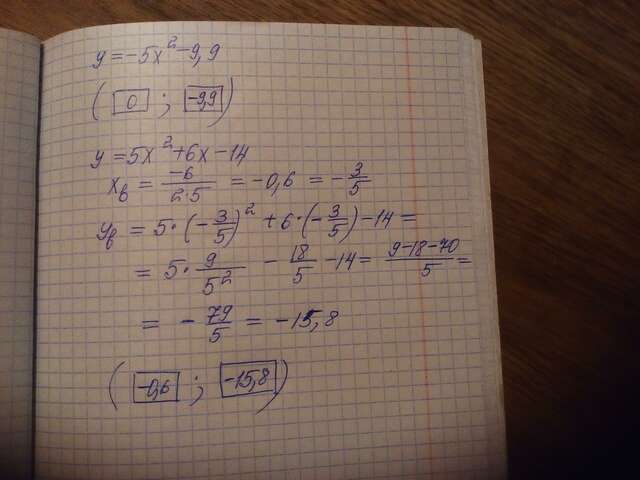 y = -5x² - 9,9
( 0 ; -9,9 )
y = 5x² + 6x - 14
xв = -6/(2·5) = -0,6 = -3/5
yв = 5·(-3/5)² + 6·(-3/5) - 14 =
= 5·9/5² - 18/5 - 14 = (9-18-70)/5 =
= -79/5 = -15,8
( -0,6 ; -15,8 )